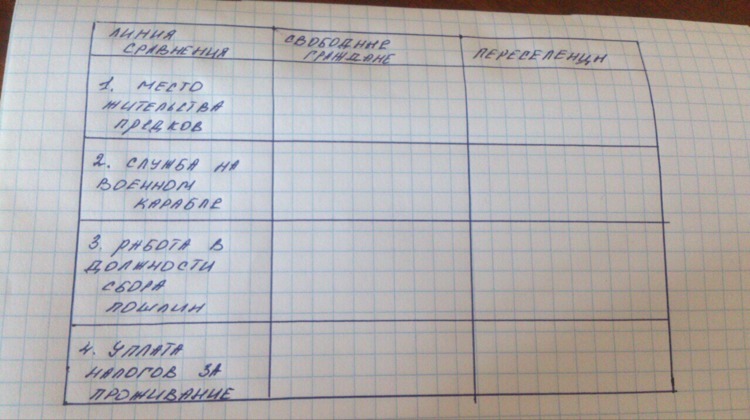 ЛИНИЯ
СРАВНЕНИЯ
СВОБОДНЫЕ
ГРАЖДАНЕ
ПЕРЕСЕЛЕНЦЫ
1. МЕСТО
ЖИТЕЛЬСТВА
ПРЕДКОВ
2. СЛУЖБА НА
ВОЕННОМ
КАРАБЛЕ
3. РАБОТА В
ДОЛЖНОСТИ
СБОРА
ПОШЛИН
4. УПЛАТА
НАЛОГОВ ЗА
ПРОЖИВАНИЕ